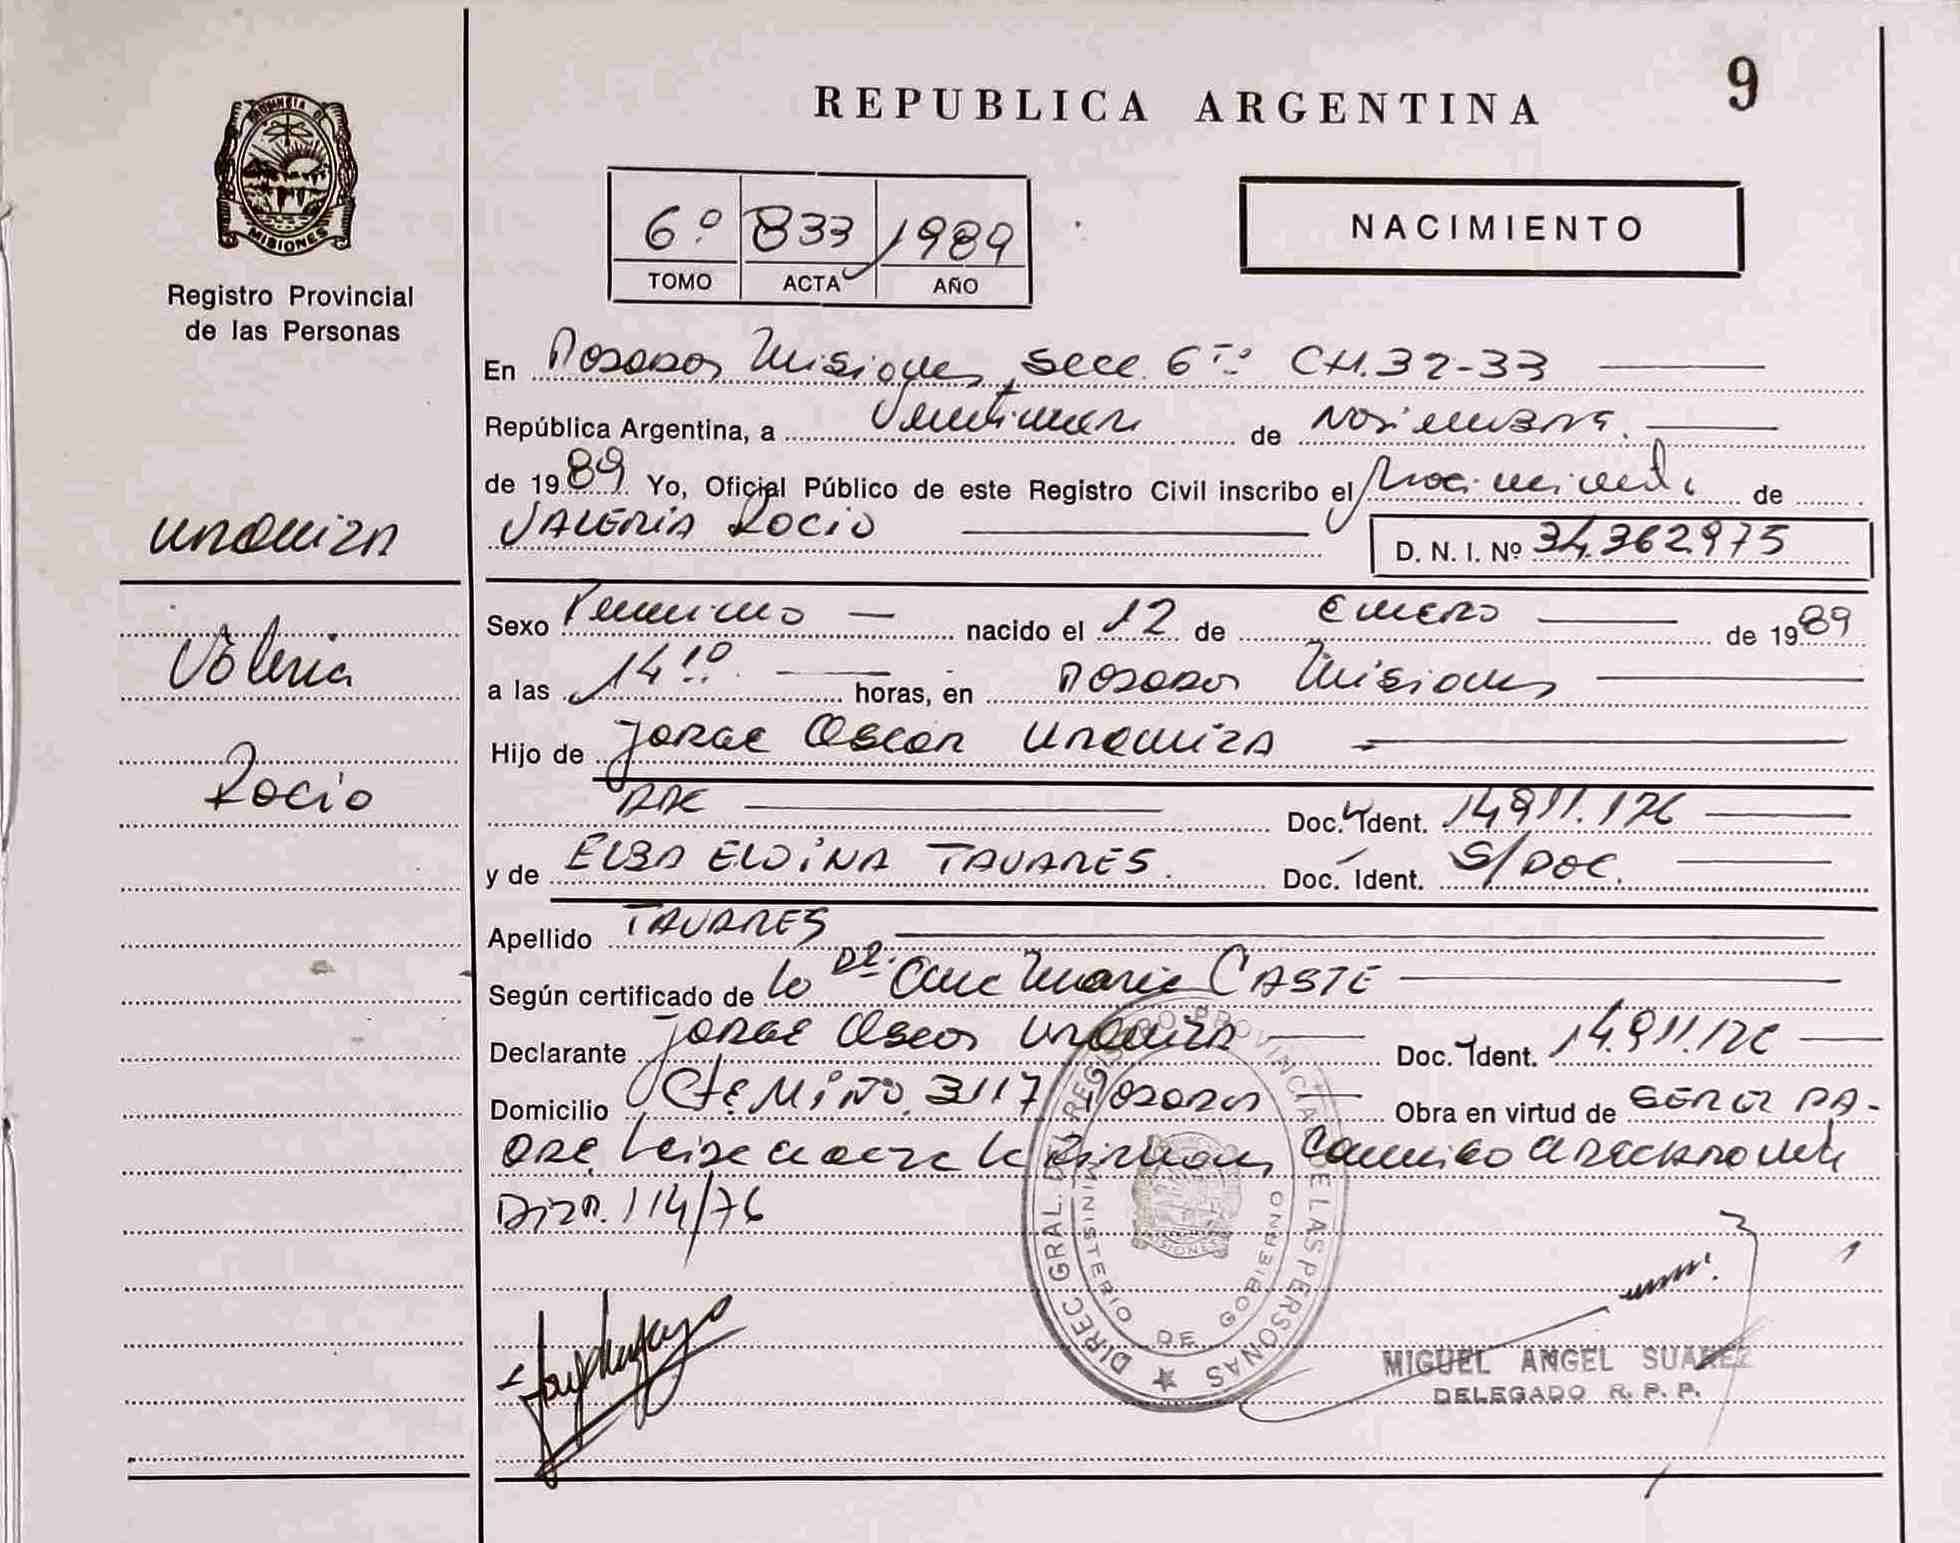 REPUBLICA ARGENTINA
9
PROVINCIA DE
MISIONES
Registro Provincial
de las Personas
6º 833 1989
TOMO ACTA AÑO
NACIMIENTO
En Posadas Misiones, Secc. 6ta CH.32-33
República Argentina, a de Noviembre.
de 1989 Yo, Oficial Público de este Registro Civil inscribo el Nacimiento de
VALERIA ROCIO
D. N. I. Nº 34.362.975
URQUIZA
Valeria
Rocio
Sexo Femenino nacido el 12 de ENERO de 1989
a las 14:10 horas, en Posadas Misiones
Hijo de Jorge Oscar URQUIZA
Doc. Ident. 14.911.176
y de ELBA ELVINA TAVARES. Doc. Ident. S/DOC.
Apellido TAVARES
Según certificado de la Dra. Ana Maria CASTE
Declarante Jorge Oscar URQUIZA Doc. Ident. 14.911.176
Domicilio 3117 Posadas Obra en virtud de SER EL PA-
DRE,
114/76
DIREC. GRAL. DEL REGISTRO PROVINCIAL DE LAS PERSONAS
MINISTERIO DE GOBIERNO
MISIONES
MIGUEL ANGEL SUAREZ
DELEGADO R. P. P.